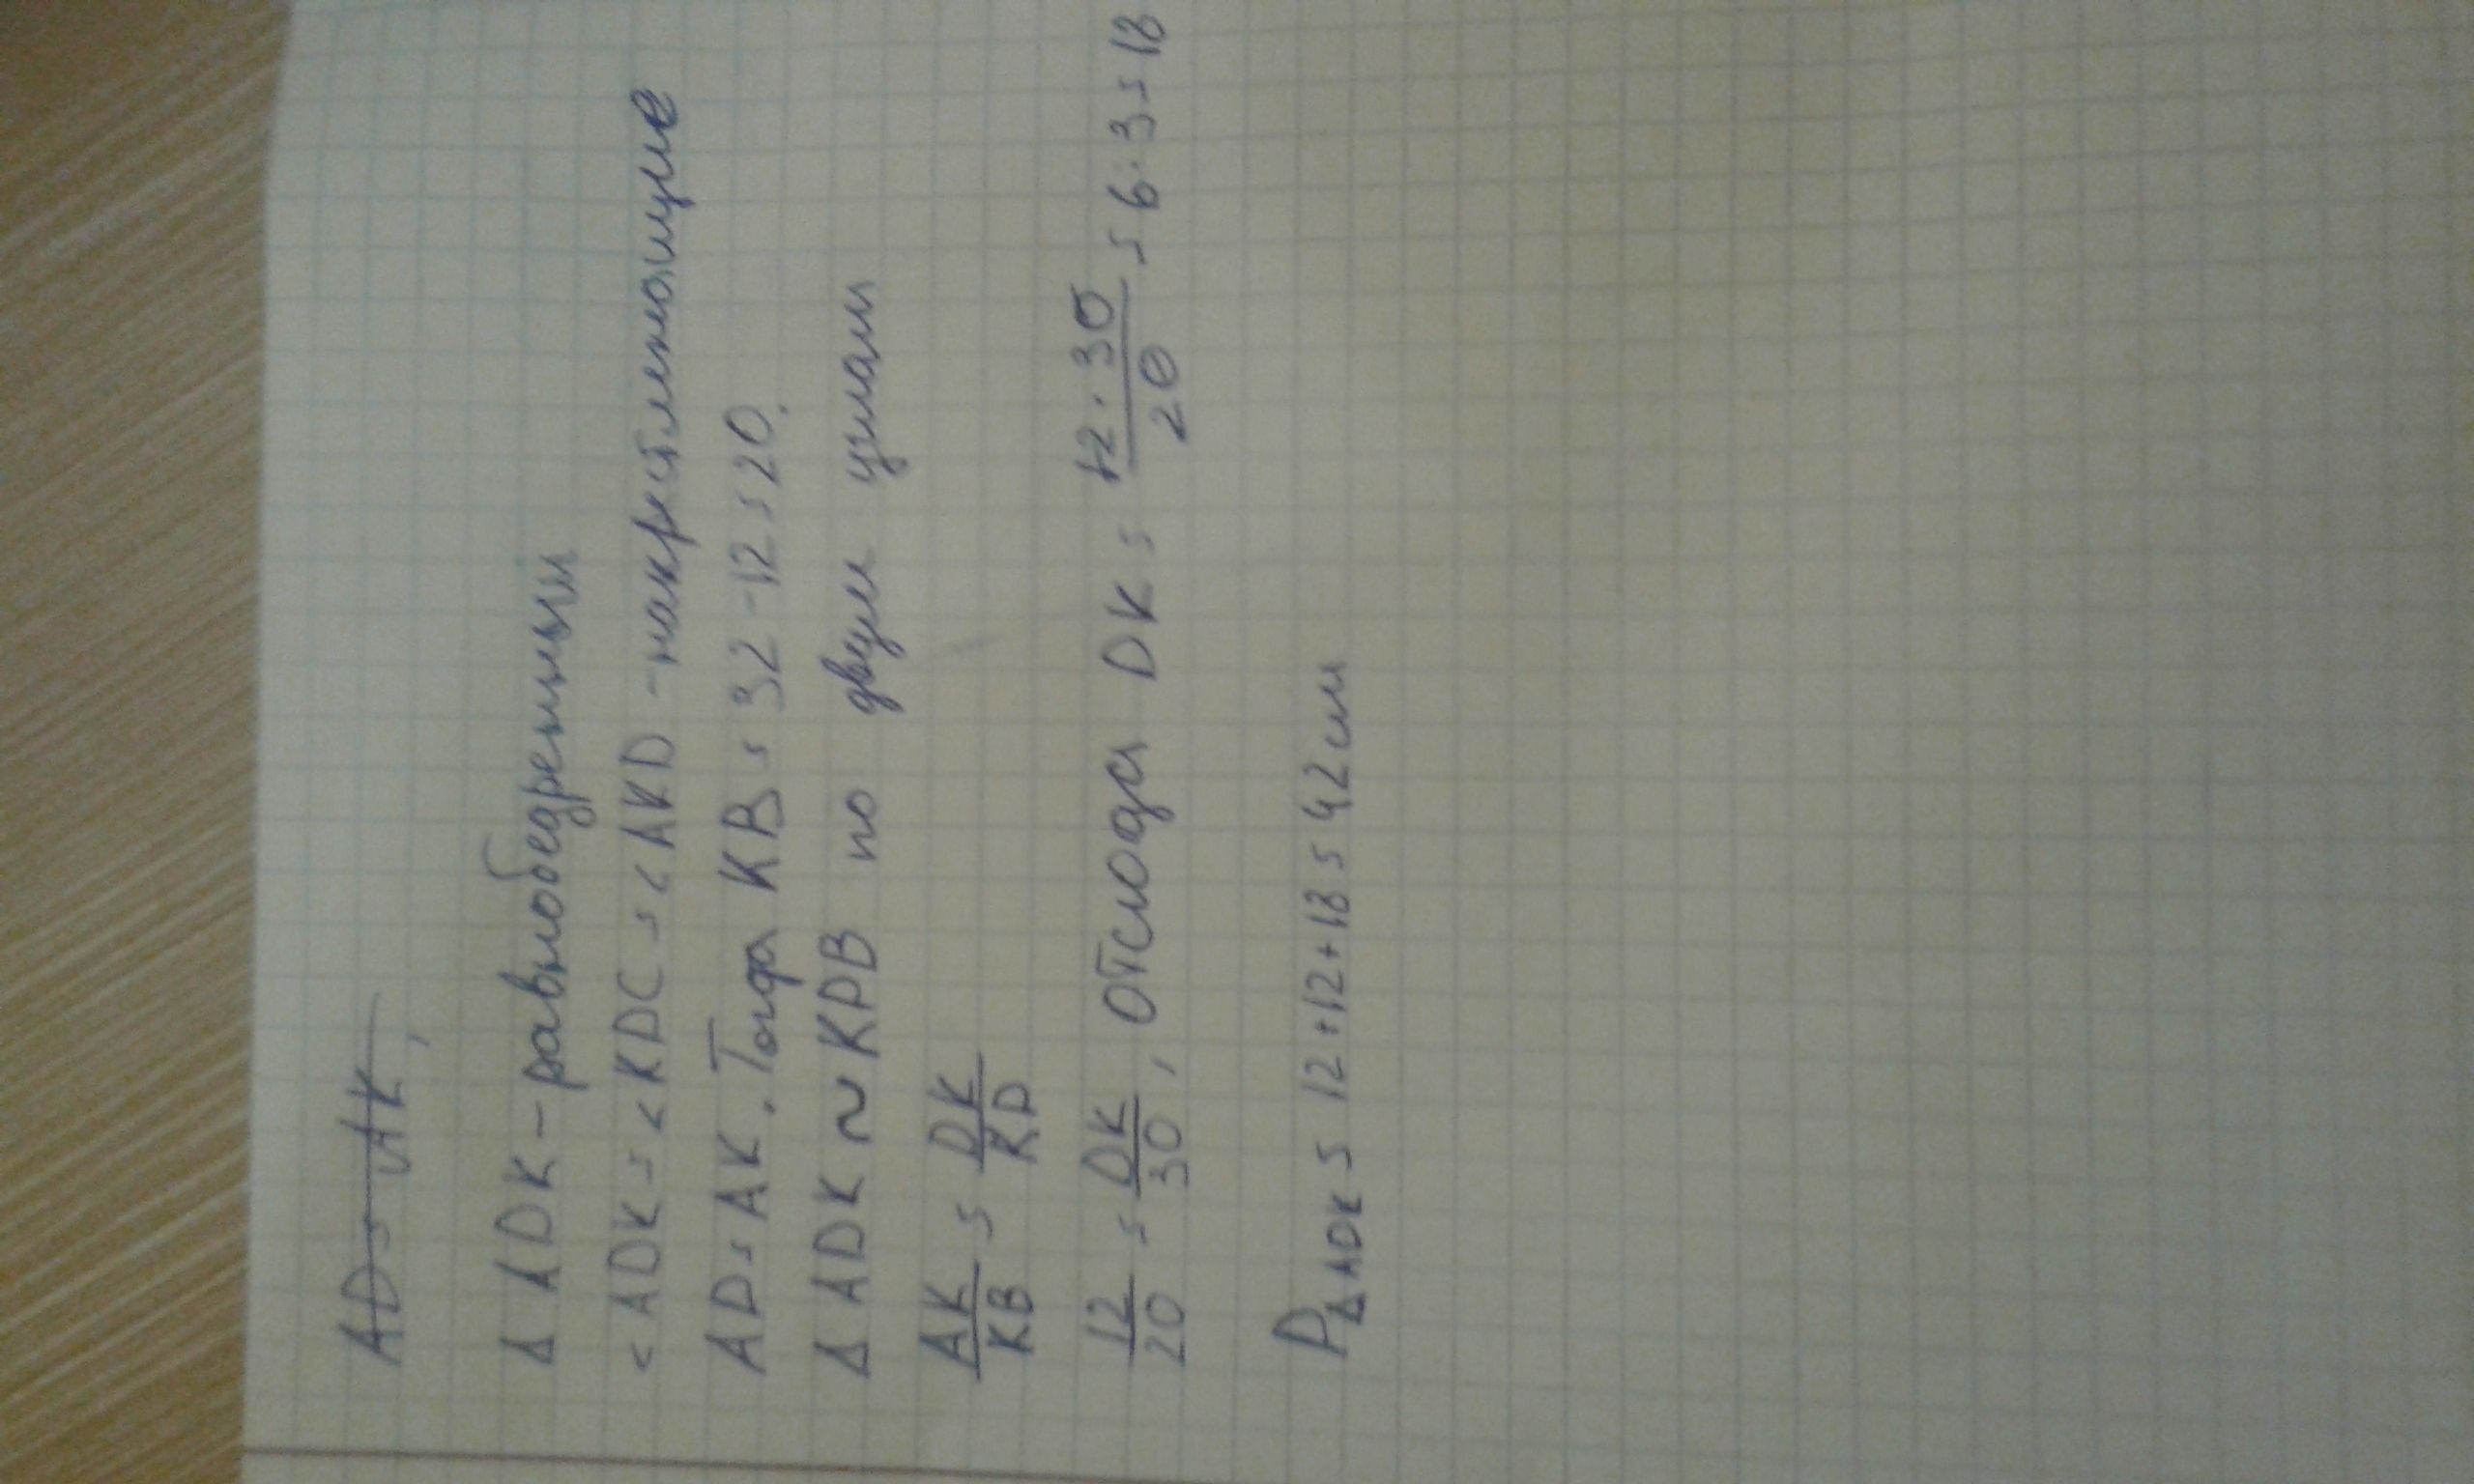 AD = AK,
Δ ADK - равнобедренный
< ADK = < KDC = < AKD - накрестлежащие
AD = AK. Тогда KB = 32 - 12 = 20.
Δ ADK ~ KPB по двум углам
AK/KB = DK/KD
12/20 = DK/30, отсюда DK = 12·30/20 = 6·3 = 18
P Δ ADK = 12+12+18 = 42 см